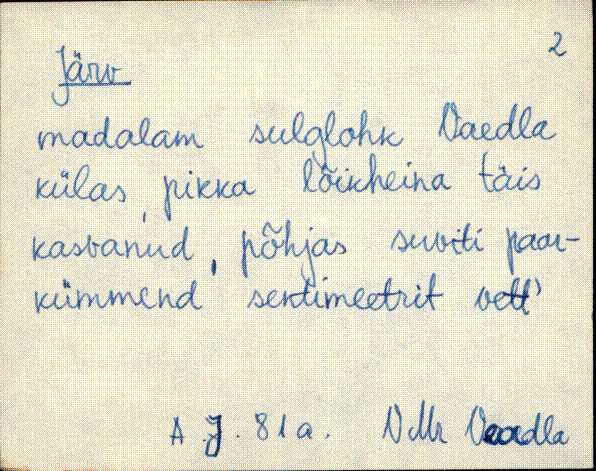 2
Järv
madalam sulglohk Vaedla
külas, pikka lõikheina täis
kasvanud, põhjas suviti paar-
kümmend sentimeetrit vett'
A.J. 81a. VMr Vaedla